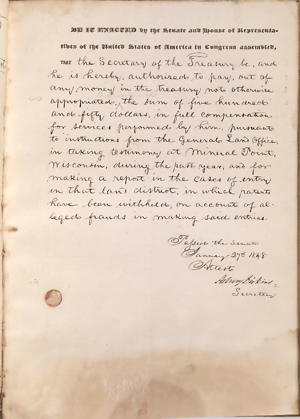 BE IT ENACTED by the Senate and House of Representa-
tives of the United States of America in Congress assembled,
THAT the Secretary of the Treasury be, and
he is hereby, authorized to pay, out of
any money in the treasury not otherwise
appropriated, the sum of five hundred
and fifty dollars, in full compensation
for services performed by him, pursuant
to instructions from the General Land Office,
in taking testimony at Mineral Point,
Wisconsin, during the past year, and for
making a report in the cases of entry
in that land district, in which patents
have been withheld, on account of al-
leged frauds in making said entries.
Passed the Senate
January 27th 1848
Attest
Asbury Dickins
Secretary